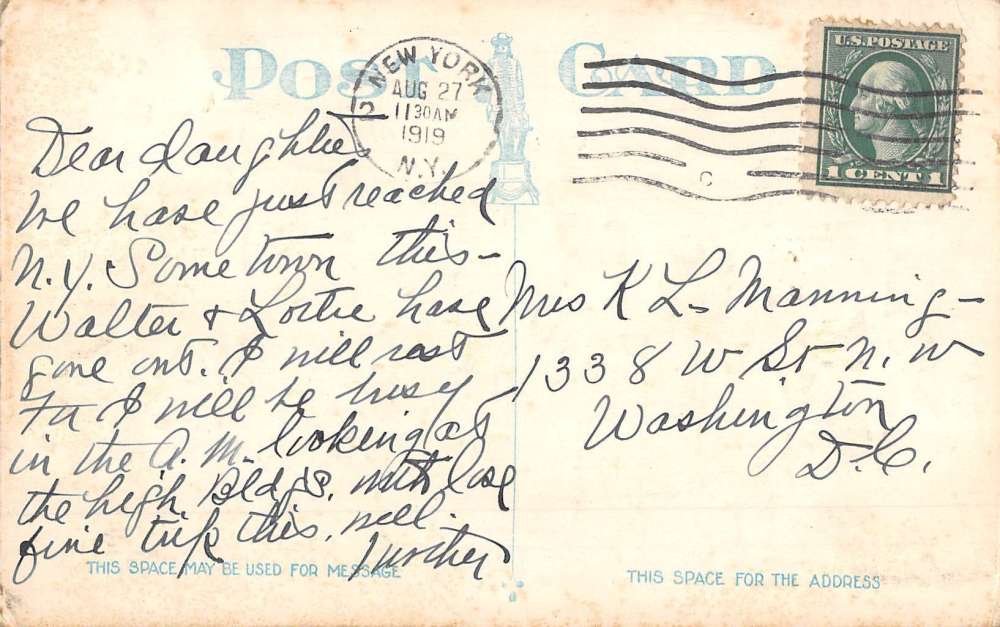 POST CARD
NEW YORK
2
AUG 27
11 30 AM
1919
N.Y.
C
U.S. POSTAGE
1 CENT 1
Dear daughter
We have just reached
N.Y. Some town this -
Walter & Lottie have
gone out. I will rest
I will be busy
in the A.M. looking at
the high Bldgs. with love
fine trip this. well.
Mrs K L. Manning -
1338 W St N. W
Washington
D.C.
THIS SPACE MAY BE USED FOR MESSAGE
THIS SPACE FOR THE ADDRESS